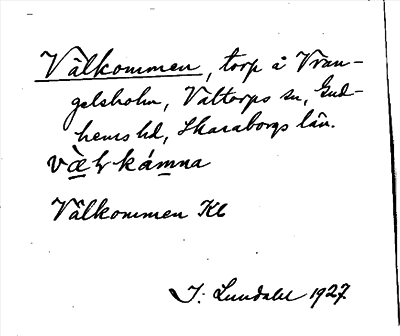 Välkommen, torp å Vran-
gelsholm, Valtorps sn, Gud-
hems hd, Skaraborgs län.
væ̀lkámna
Välkommen Kb
I. Lundahl 1927.